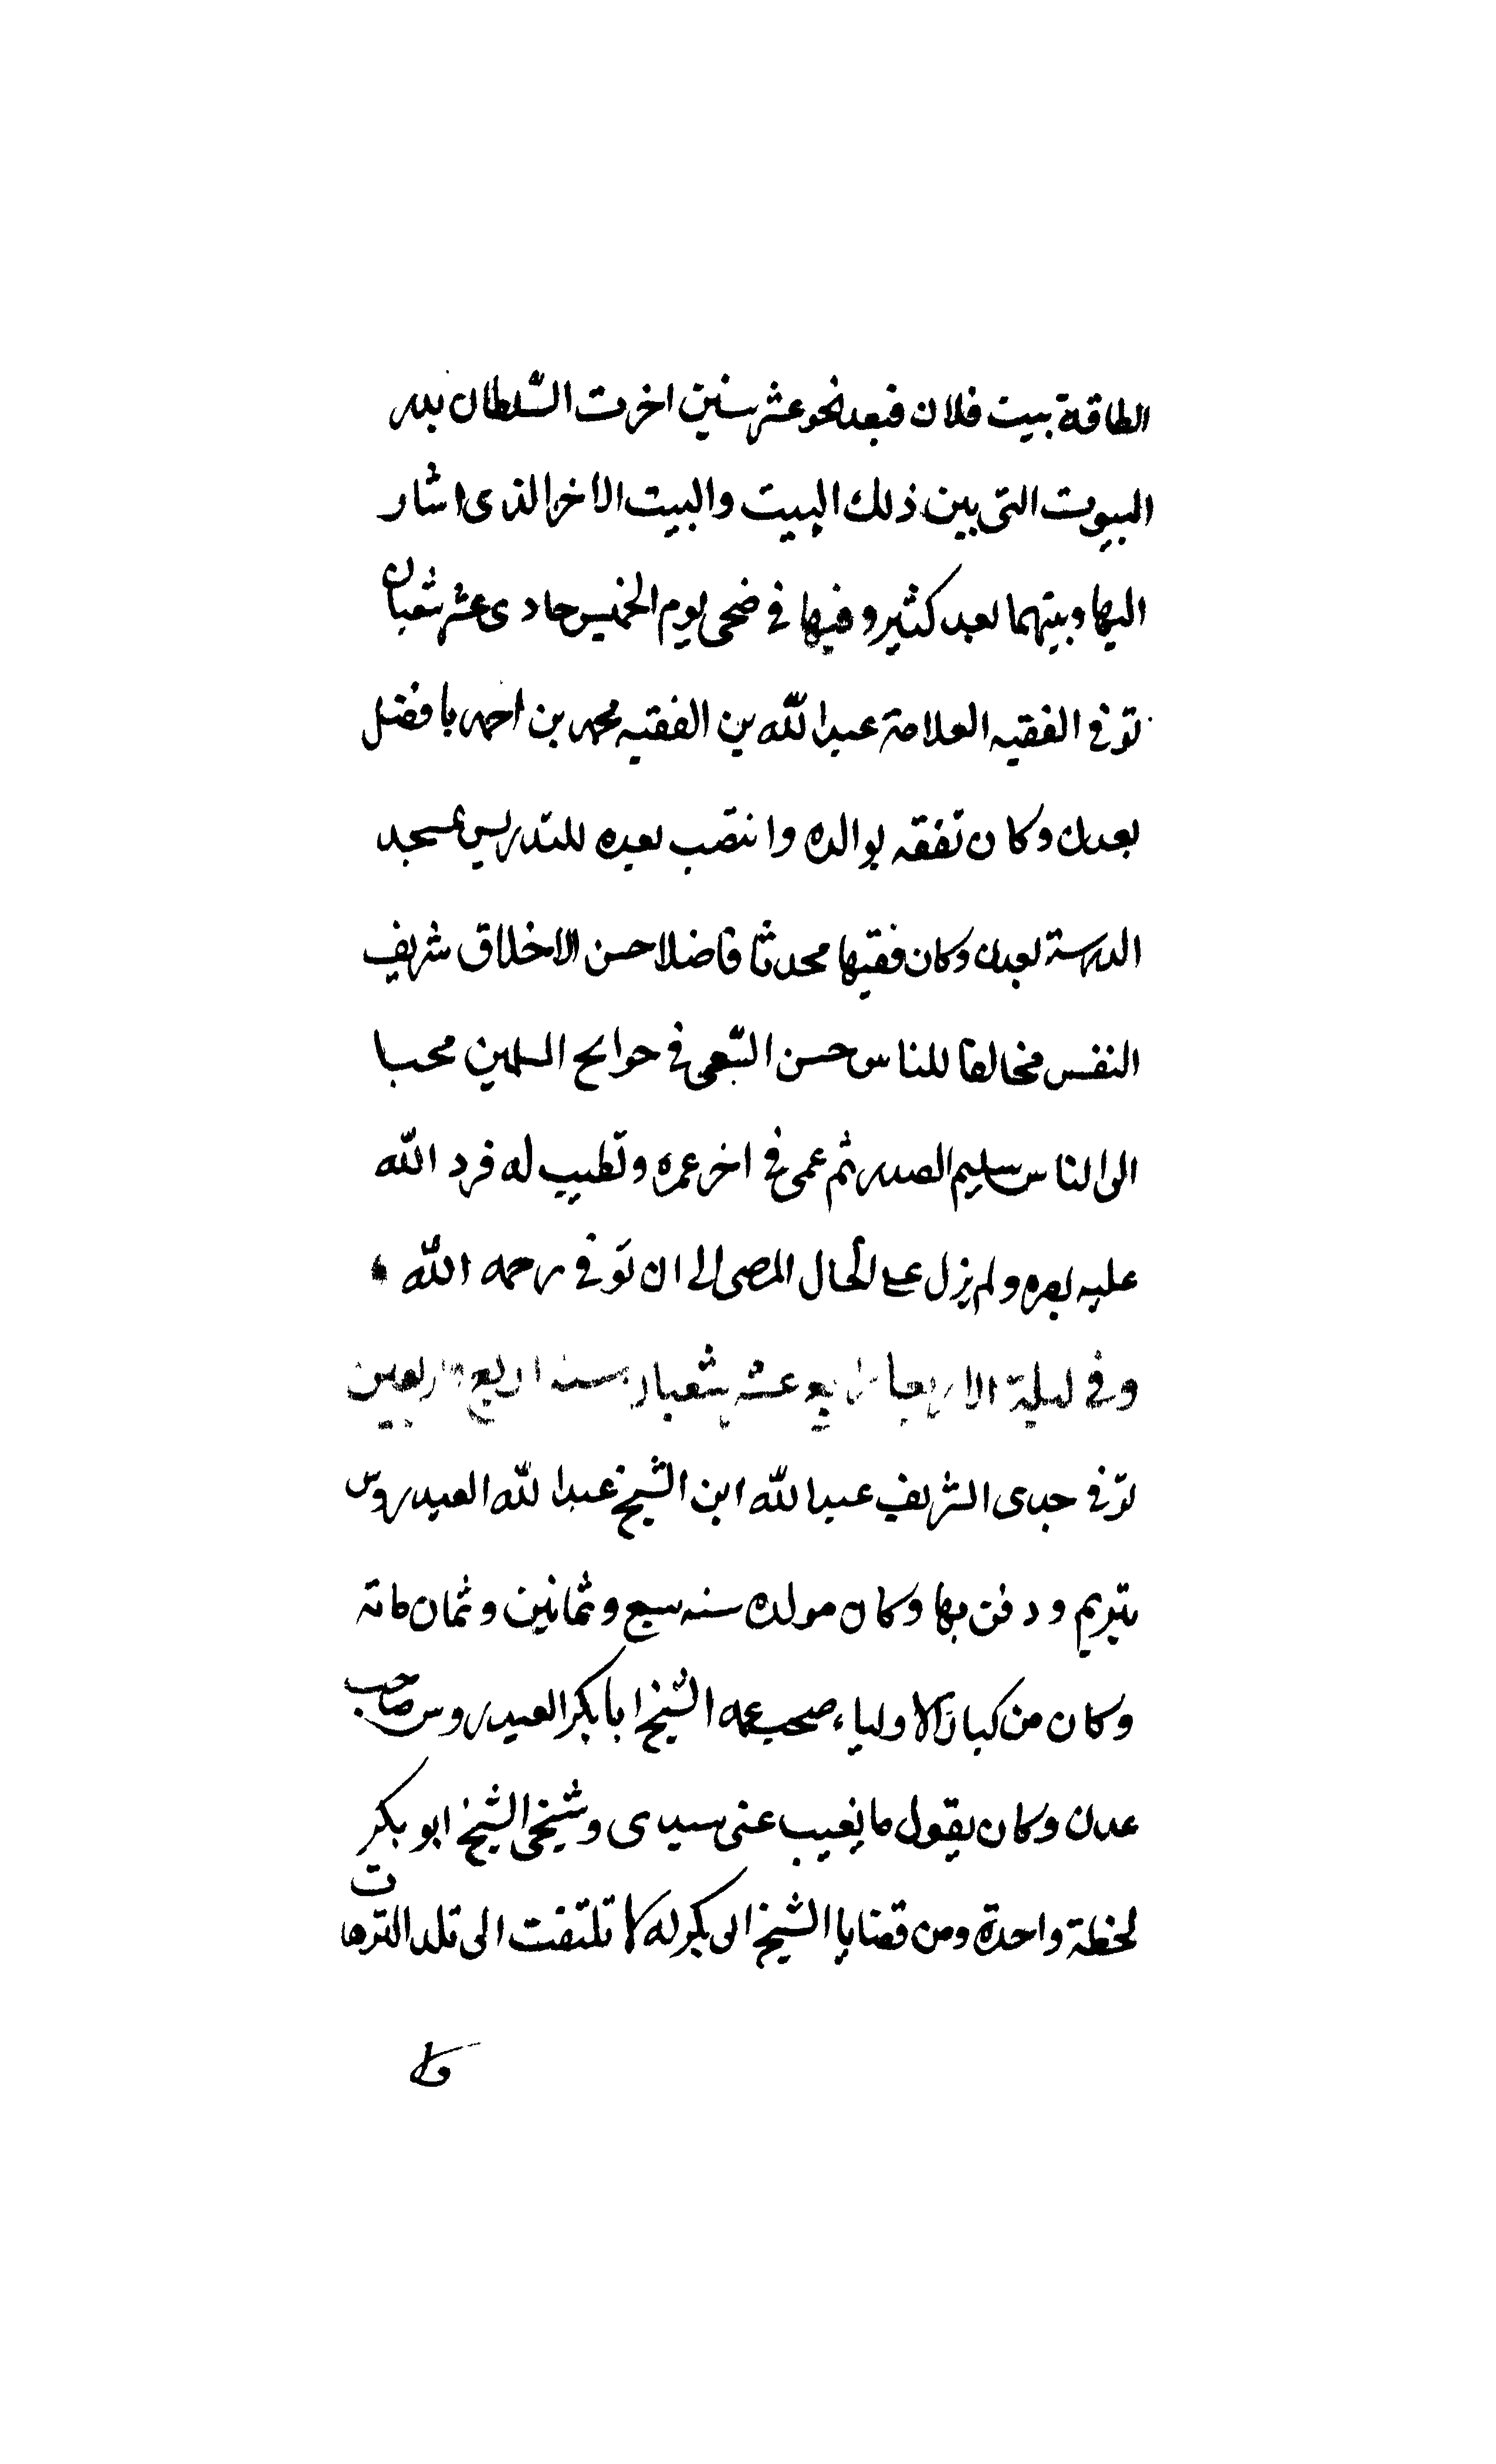 الطاقة بيت فلان فبعد نحو عشر سنين اخرت السلطان بدر
البيوت التى بين ذلك البيت والبيت الاخر الذى اشار
اليها وبينهما بعد كثير وفيها فى ضحى يوم الخميس حادى عشر شعبان
توفى الفقيه العلامة عبدالله بن الفقيه محمد بن احمد بافضل
بعدن وكان تفقه بوالده وانتصب بعده للتدريس بمسجد
الدرسة بعدن وكان فقيها محدثا فاضلا حسن الاخلاق شريف
النفس مخالقا للناس حسن السّعى فى حوايج المسلمين محببا
الى الناس سليم الصدر ثم عمى فى اخر عمره وتطبب له فرد الله
عليه بصره ولم يزل على الحال المرضى الى ان توفى رحمه الله
وفى ليلة الاربعا رابع عشر شعبان سنة اربع واربعين
توفى جدى الشريف عبدالله ابن الشيخ عبدالله العيدروس
بتريم ودفن بها وكان مولده سنه سبع وثمانين وثمان ماته
وكان من كبار الاولياء صحب عمه الشيخ ابا بكر العيدروس صاحب
عدن وكان يقول ما يغيب عنى سيدى وشيخى الشيخ ابو بكر
لحظة واحدة ومن قضايا الشيخ ابى بكر له لا تلتفت الى تلك الترهات